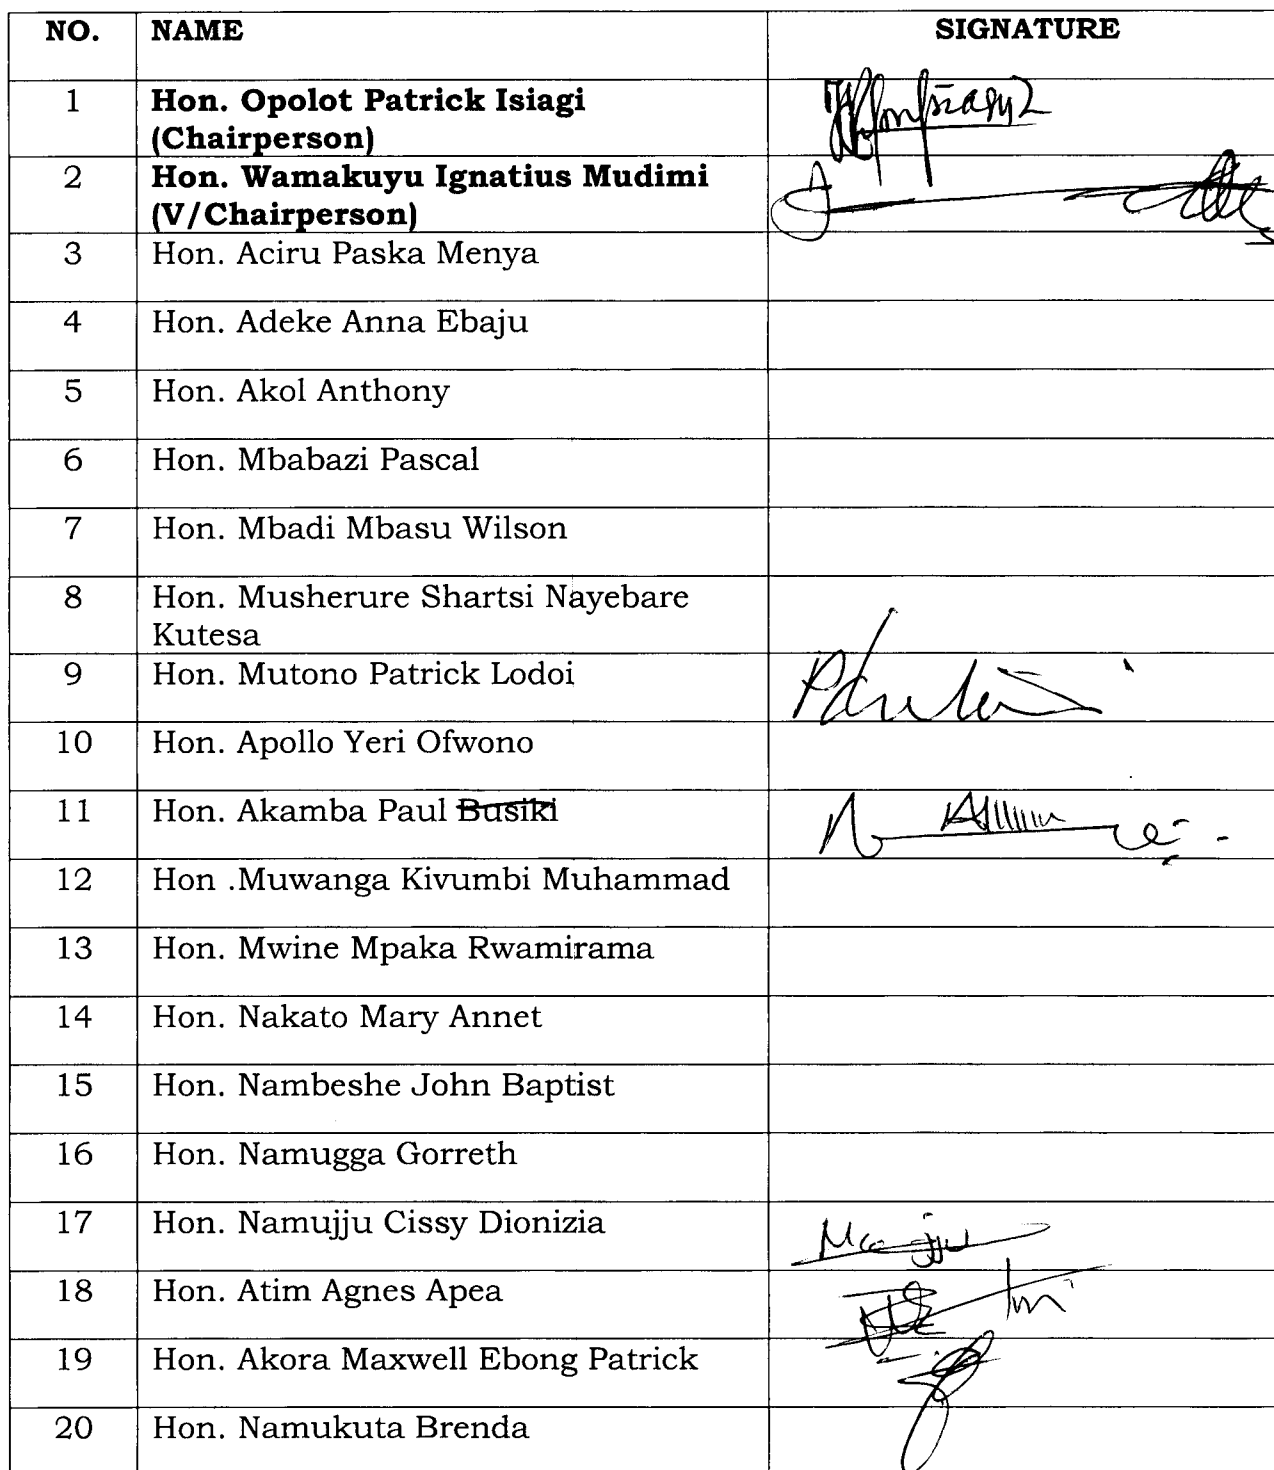 NO. NAME SIGNATURE
1 Hon. Opolot Patrick Isiagi
(Chairperson)
2 Hon. Wamakuyu Ignatius Mudimi
(V/Chairperson)
3 Hon. Aciru Paska Menya
4 Hon. Adeke Anna Ebaju
5 Hon. Akol Anthony
6 Hon. Mbabazi Pascal
7 Hon. Mbadi Mbasu Wilson
8 Hon. Musherure Shartsi Nayebare
Kutesa
9 Hon. Mutono Patrick Lodoi
10 Hon. Apollo Yeri Ofwono
11 Hon. Akamba Paul Busiki
12 Hon .Muwanga Kivumbi Muhammad
13 Hon. Mwine Mpaka Rwamirama
14 Hon. Nakato Mary Annet
15 Hon. Nambeshe John Baptist
16 Hon. Namugga Gorreth
17 Hon. Namujju Cissy Dionizia
18 Hon. Atim Agnes Apea
19 Hon. Akora Maxwell Ebong Patrick
20 Hon. Namukuta Brenda